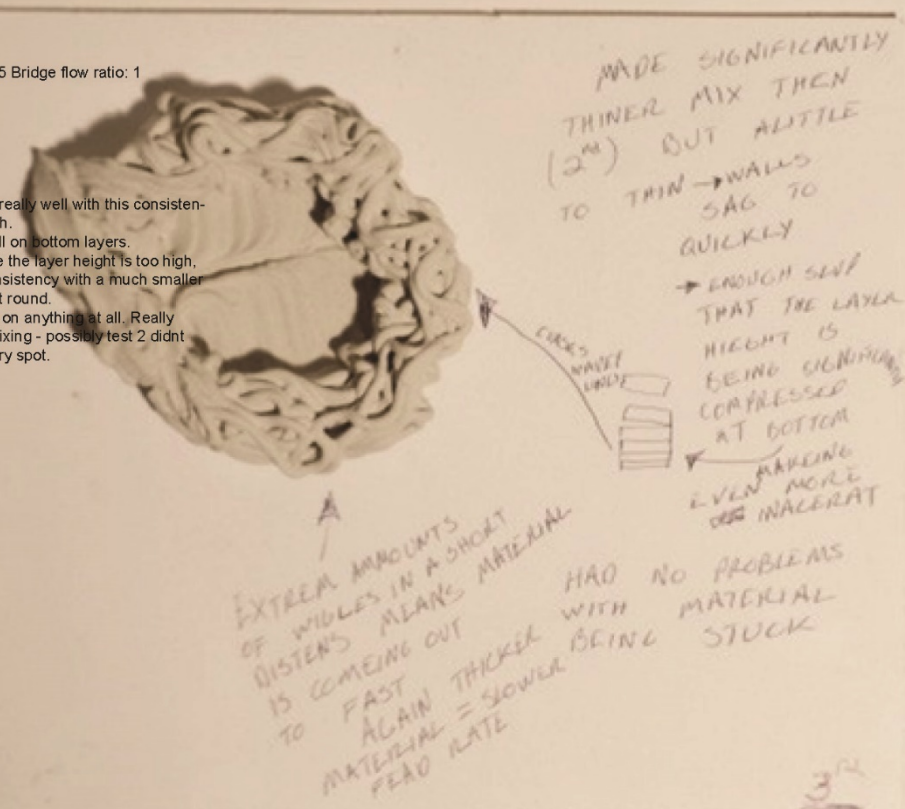 5 Bridge flow ratio: 1
really well with this consisten-
h.
ll on bottom layers.
e the layer height is too high,
nsistency with a much smaller
t round.
on anything at all. Really
ixing - possibly test 2 didnt
ry spot.
MADE SIGNIFICANTLY
THINER MIX THEN
(2nd) BUT ALITTLE
TO THIN → WALLS
SAG TO
QUICKLY
→ ENOUGH
THAT THE LAYER
HIEGHT IS
BEING
COMPRESSED
AT BOTTOM
MAKEING
EVEN MORE
INACERAT
EXTREM AMMOUNTS
OF WIGLES IN A SHORT
DISTENS MEANS MATERIAL
IS COMEING OUT
TO FAST
AGAIN THICKER
MATERIAL = SLOWER
FEAD RATE
HAD NO PROBLEMS
WITH MATERIAL
BEING STUCK
3rd